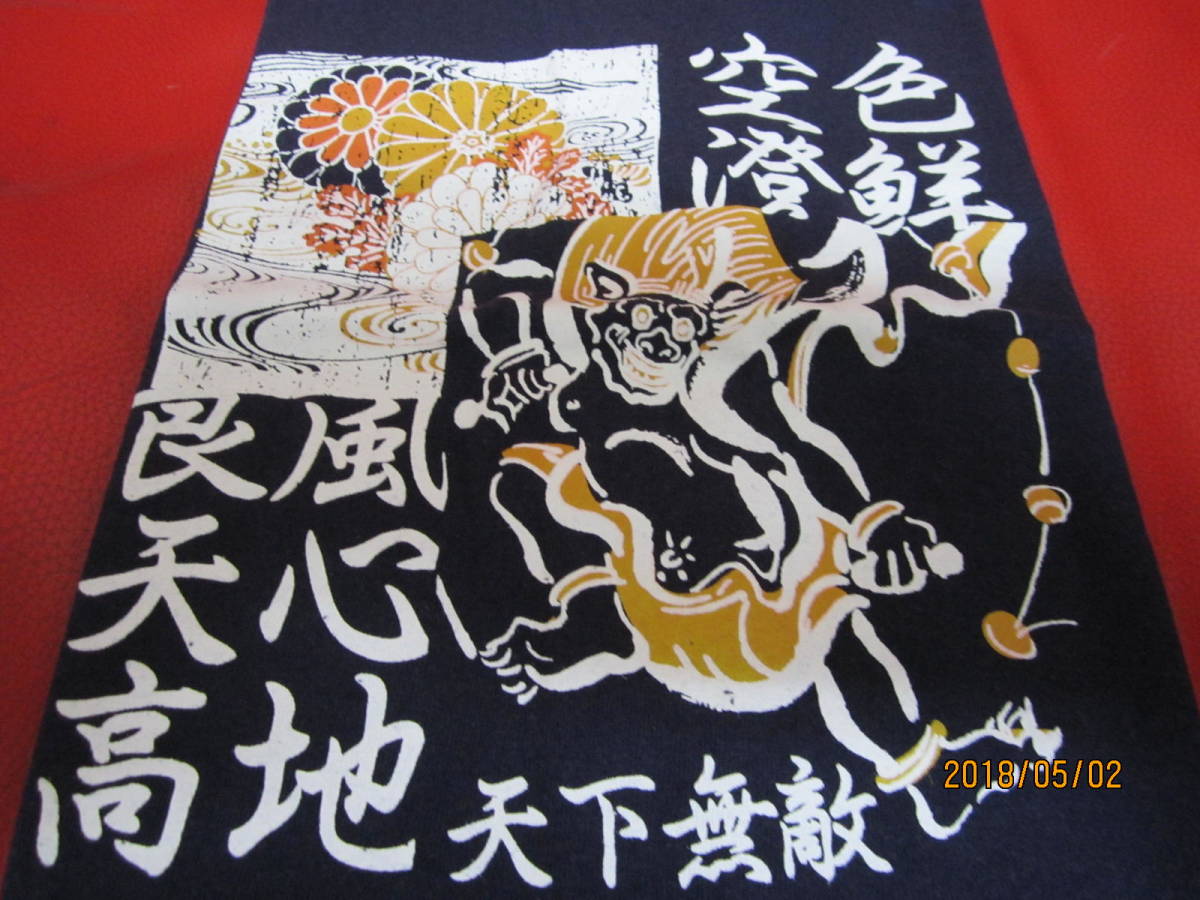 色鮮
空澄
風心地
良天高
天下無敵
2018/05/02